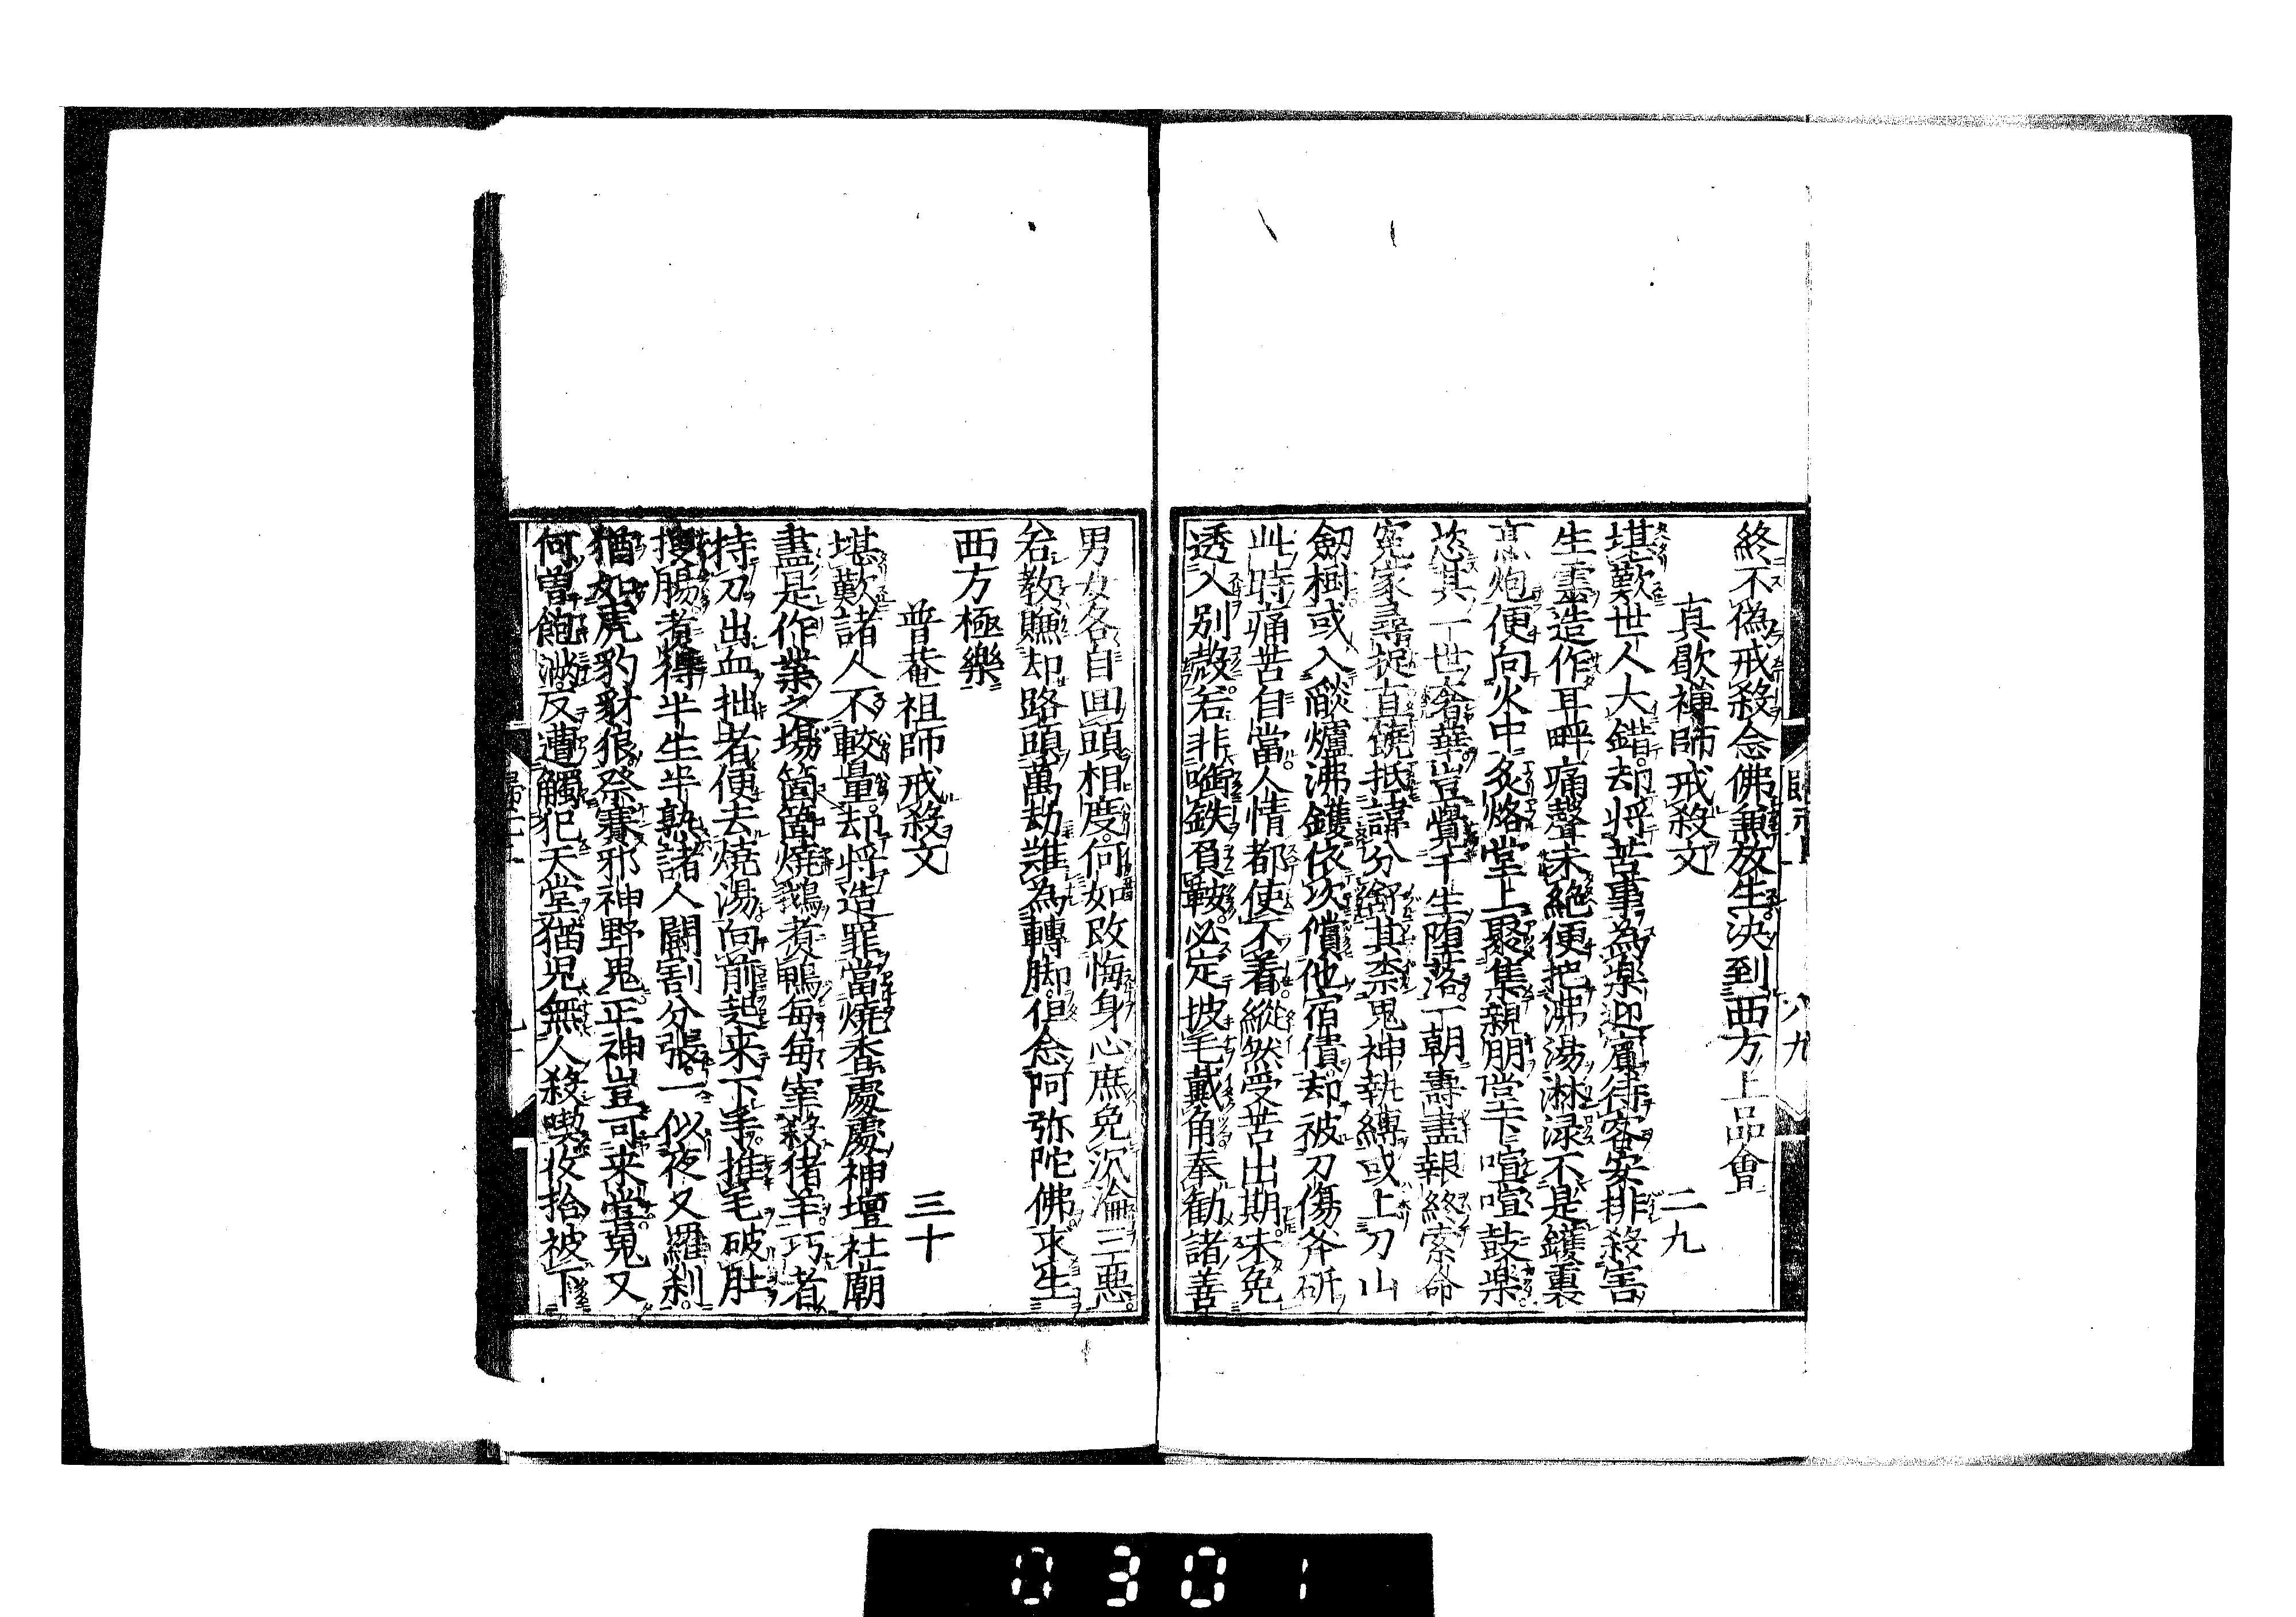 終不偽戒殺念佛兼放生決到西方上品會
真歇禅師戒殺文　二九
堪歎世人大錯却将苦事為楽迎賓待客安排殺害
生霊造作耳畔痛聲未絶便把沸湯淋渌不是鑊裏
烹炮便向火中炙烙堂上聚集親朋堂下喧喧鼓楽
恣其一世奢華豈覺千生堕落一朝壽盡報終索命
冤家尋捉直饒抵諱分舒其柰鬼神執縛或上刀山
劒樹或入燄爐沸鑊依次償他宿債却被刀傷斧斫
此時痛苦自當人情都使不着縱然受苦出期未免
透入別殻若非啣鉄負鞍必定披毛戴角奉勧諸善
男女各自回頭相度何如改悔身心庶免沉淪三悪
若教賺却路頭萬劫難為轉脚但念阿弥陀佛求生
西方極樂
普菴祖師戒殺文　三十
堪歎諸人不較量却将造罪當燒香處處神壇社廟
盡是作業之場箇箇燒鵝煑鴨毎毎宰殺猪羊巧者
持刀出血拙者便去燒湯向前起来下手推毛破肚
搜腸煑得半生半熟諸人鬪割分張一似夜叉羅刹
猶如虎豹豺狼祭賽邪神野鬼正神豈可来甞冤又
何曽飽滿反遭觸犯天堂猶児無人殺喫收拾被下
八九
0301